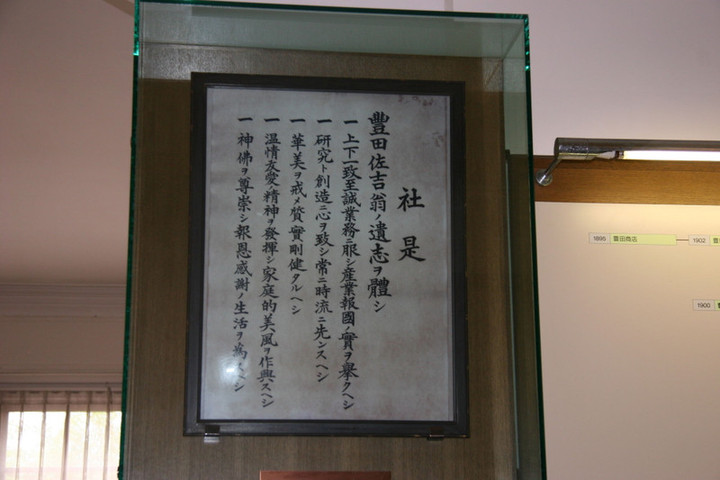 社是
豐田佐吉翁ノ遺志ヲ體シ
一 上下一致至誠業務ニ服シ産業報國ノ實ヲ擧クヘシ
一 研究ト創造ニ心ヲ致シ常ニ時流ニ先ンスヘシ
一 華美ヲ戒メ質實剛健タルヘシ
一 温情友愛ノ精神ヲ發揮シ家庭的美風ヲ作興スヘシ
一 神佛ヲ尊崇シ報恩感謝ノ生活ヲ為スヘシ
1895 豊田商店
1902
1900